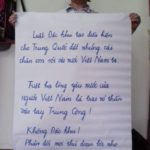 Luật Đặc khu tạo điều kiện
cho Trung Quốc đặt những cái
chân con sói vào nước Việt Nam ta
Triệt hạ lòng yêu nước của
người Việt Nam là trao nô thần
vào tay Trung Cộng!
Không Đặc khu!
Phản đối mọi thủ đoạn từ nhà